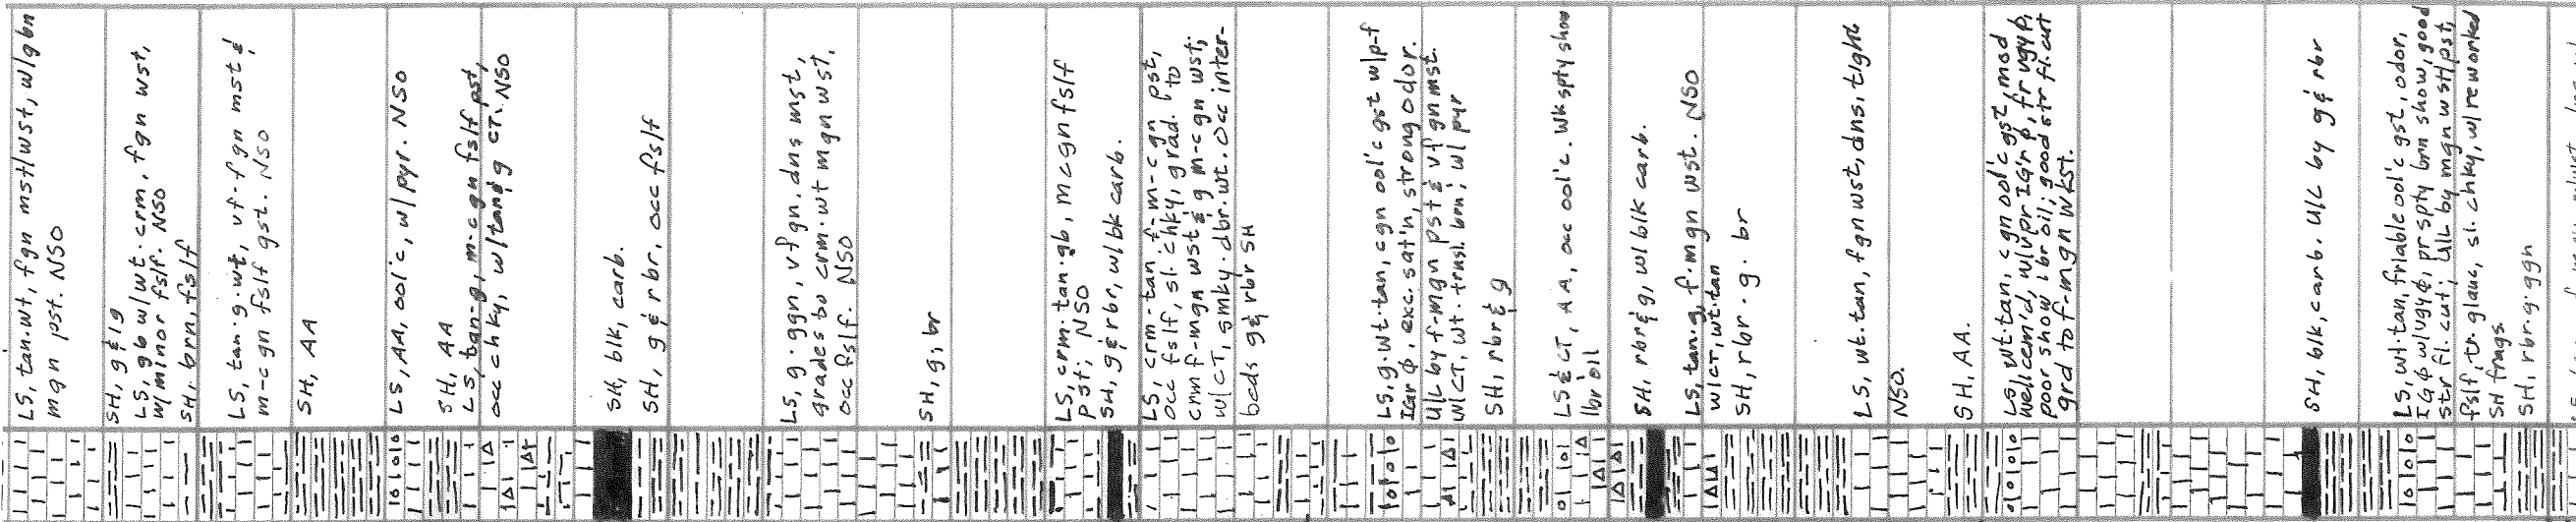 LS, tan·wt, fgn mst/wst, w/gbn
mgn pst. NSO
SH, g & lg
LS, gb w/wt·crm, fgn wst,
w/minor fslf. NSO
SH, brn, fslf
LS, tan·g·wt, vf-fgn mst &
m-c gn fslf gst. NSO
SH, AA
LS, AA, ool'c, w/pyr. NSO
SH, AA
LS, tan-g, m-c gn fslf pst,
occ chky, w/tan & g CT. NSO
SH, blk, carb.
SH, g & rbr, occ fslf
LS, g·ggn, vfgn, dns mst,
grades to crm·wt mgn wst,
occ fslf. NSO
SH, g, br
LS, crm·tan·gb, mcgn fslf
pst; NSO
SH, g & rbr, w/bk carb.
LS, crm-tan, f-m-c gn pst,
occ fslf, sl. chky, grad. to
crm f-mgn wst & g m-cgn wst;
w/CT, smky·dbr·wt. Occ inter-
beds g & rbr SH
LS, g·wt·tan, cgn ool'c gst w/p-f
IGr ϕ, exc. sat'n, strong odor.
U/L by f-mgn pst & vf gn mst.
w/CT, wt·trnsl. brn; w/ pyr
SH, rbr & g
LS & CT, AA, occ ool'c. Wk spty show
lbr oil
SH, rbr & g, w/blk carb.
LS, tan·g, f·mgn wst. NSO
w/CT, wt·tan
SH, rbr·g·br
LS, wt·tan, fgn wst, dns, tight
NSO.
SH, AA.
LS, wt·tan, cgn ool'c gst, mod
well cem'd, w/vpr IG'r ϕ, fr vgy ϕ,
poor show lbr oil; good str fl. cut
grd to f-mgn wkst.
SH, blk, carb. U/L by g & rbr
LS, wt·tan, friable ool'c gst, odor,
IG ϕ w/vgy ϕ, pr spty brn show, good
str fl. cut; U/L by mgn wst/pst,
fslf, tr. glauc, sl. chky, w/reworked
SH frags.
SH, rbr·g·ggn